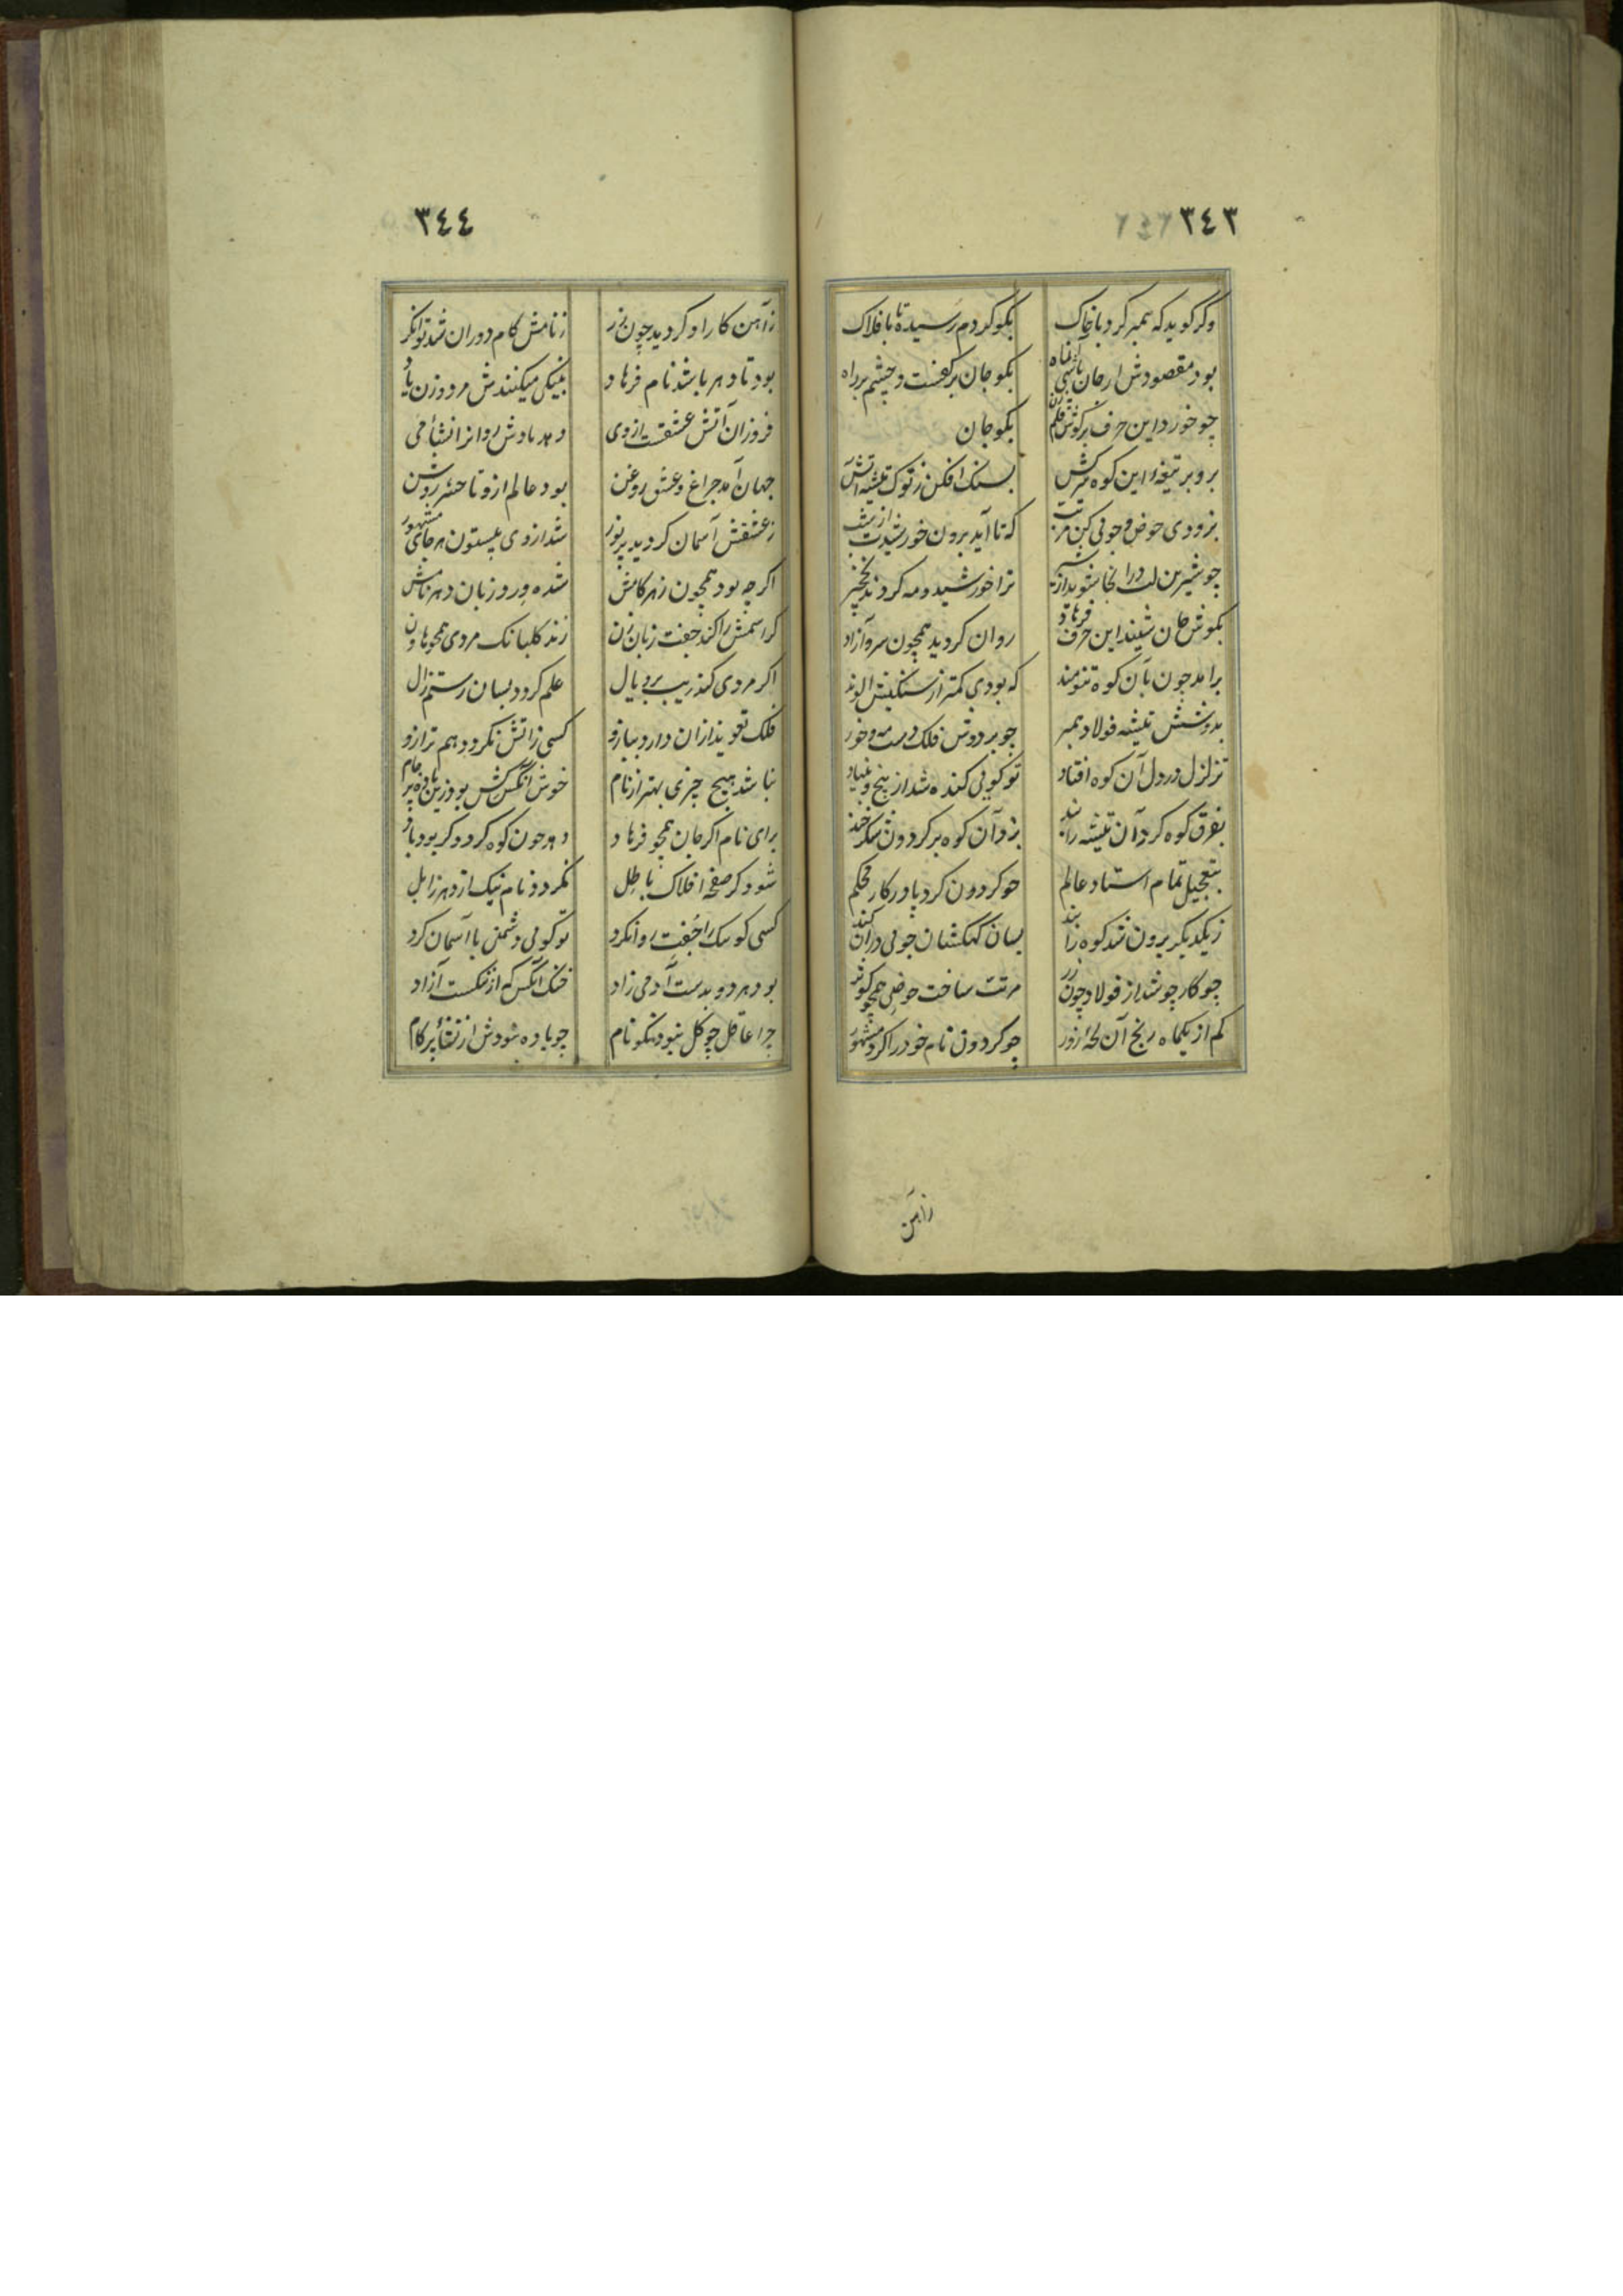 ٣٤٣
وگر کوید که همبر کرد با خاک بکو کردم رسیده تا بافلاک
بود مقصودش ار جان باشی ای ماه بکو جان بر کفست و چشم بر راه
چو خورد این حرف بر کوش بکو جان
برو بر تیغهٔ این کوه سرکش بسنک افکن ز نوک تیشه آتش
بزودی حوض و جوئی کن مرتب که تا آید برون خورشیدت از شب
چو شیرین لب در انجا شوید از شیر ترا خورشید و مه کردند نخچیر
بکوش جان شنید این حرف فرهاد روان کردید همچون سرو آزاد
برآمد چون بآن کوه تنومند که بودی کمتر از سنکیش الوند
بدوشش تیشه فولاد همبر چو بر دوش فلک دست مه و خور
تزلزل در دل آن کوه افتاد تو کوئی کنده شد از بیخ و بنیاد
بفرق کوه کرد آن تیشه را بند بزد آن کوه بر کردون شکرخند
بتعجیل تمام استاد عالم چو کردون کرد پا در کار محکم
ز یکدیکر برون شد کوه را بند بسان کهکشان جوئی در آن کند
چو کار جو شد از فولاد چون زر مرتب ساخت حوضی همچو کوثر
کم از یکماه رنج آن زور چو کردون نام خود را کرد مشهور
زاهن
٣٤٤
زآهن کار او کردید چون زر ز نامش کام دوران شد توانکر
بود تا دهر باشد نام فرهاد بنیکی میکنندش مرد و زن یاد
فروزان آتش عشقست از وی دهد یادش روانرا نشأ می
جهان آمد چراغ و عشق روغن بود عالم ازو تا حشر روشن
ز عشقش آسمان کردید پر نور شد از وی بیستون هر جای مشهور
اکر چه بود همچون زهر کامش شده ورد زبان دهر نامش
کر اسمش را کند جفت زبان زن زند کلبانک مردی همچو هاون
اکر مردی کند زیب بر و یال علم کردد بسان رستم زال
فلک تعویذ ازان دارد ببازو کسی زاتش نکردد هم ترازو
نباشد هیچ چیزی بهتر از نام خوش انکس کش بود زین باده پر جام
برای نام اکر جان همچو فرهاد دهد چون کوه کردد کر بود باد
شود کر صفحه افلاک باطل نکردد نام نیک از دهر زایل
کسی کو نیک را جفت روان کرد تو کوئی دشمنی با آسمان کرد
بود هر دو بدست آدمی زاد خنک آنکس که از ننکست آزاد
چرا عاقل چو کل نبود نکو نام چو باده شودش از نشأ پر کام